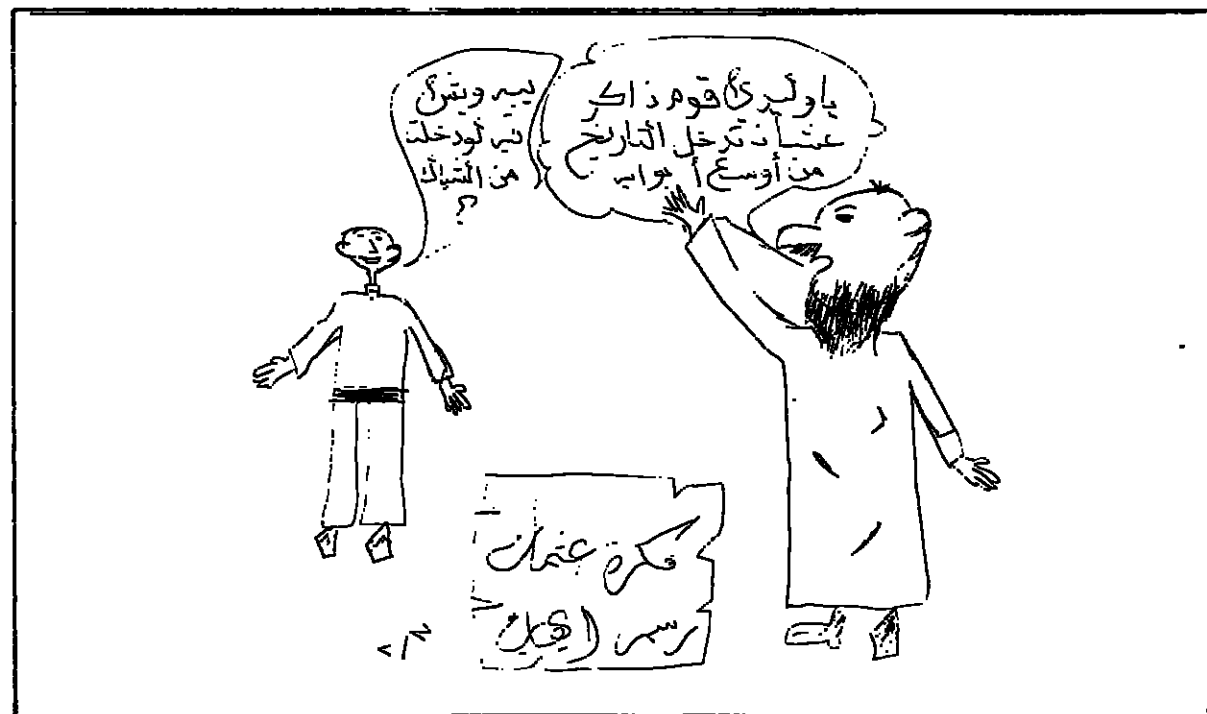 يا وليدى قوم ذاكر
عشان تدخل التاريخ
من أوسع أبوابه
ليه ويش
فيه لو دخلت
من الشباك
؟
فكرة عثمان
رسم